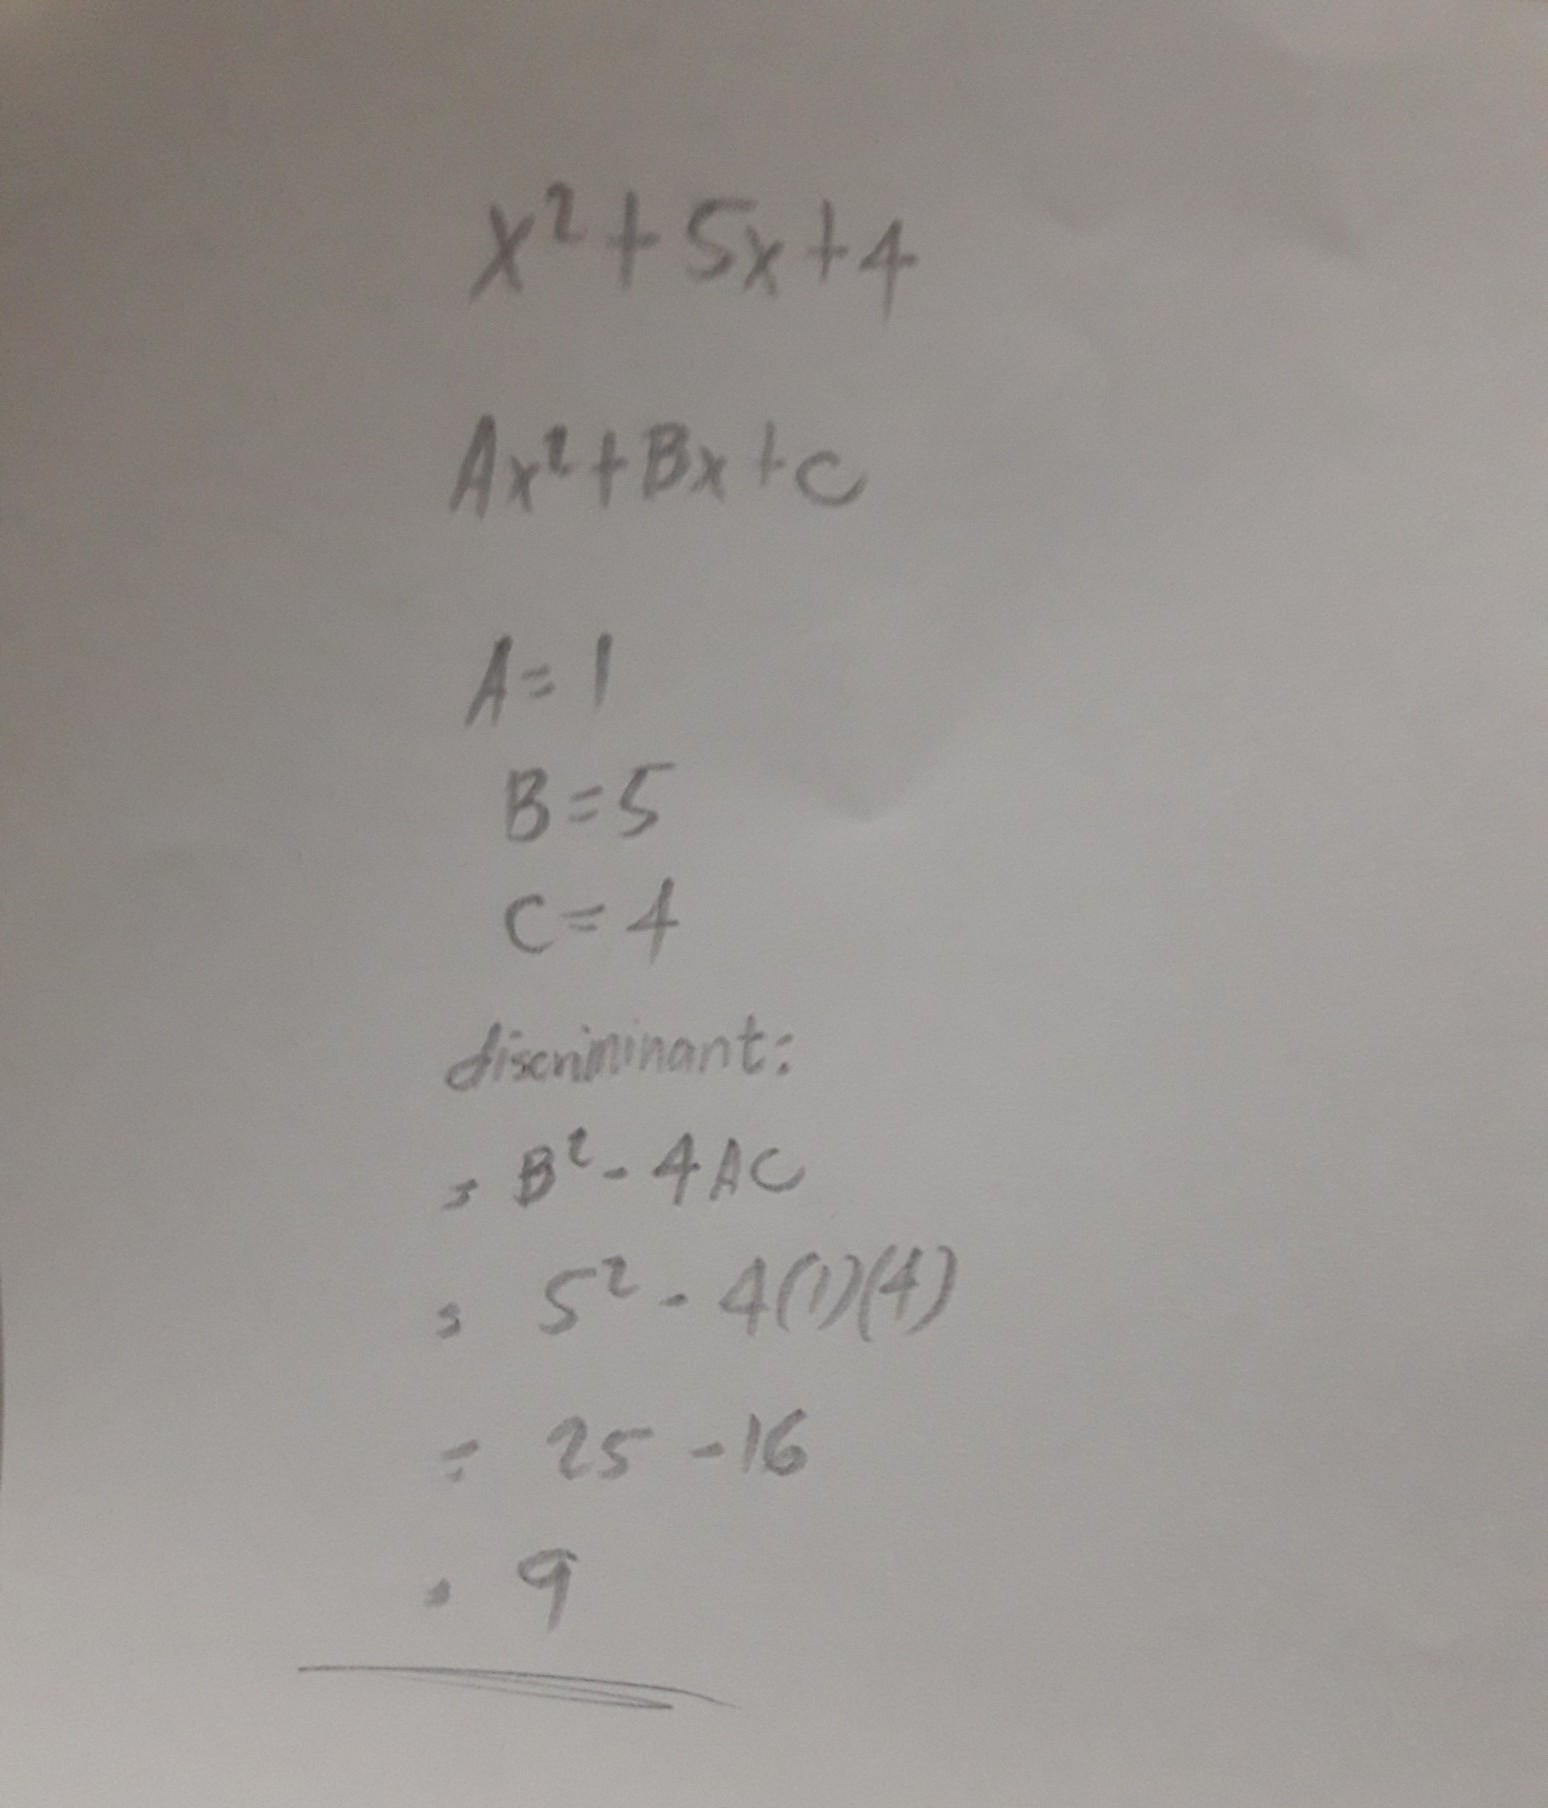 x²+5x+4
Ax²+Bx+C
A=1
B=5
C=4
discriminant:
= B²-4AC
= 5²-4(1)(4)
= 25-16
= 9